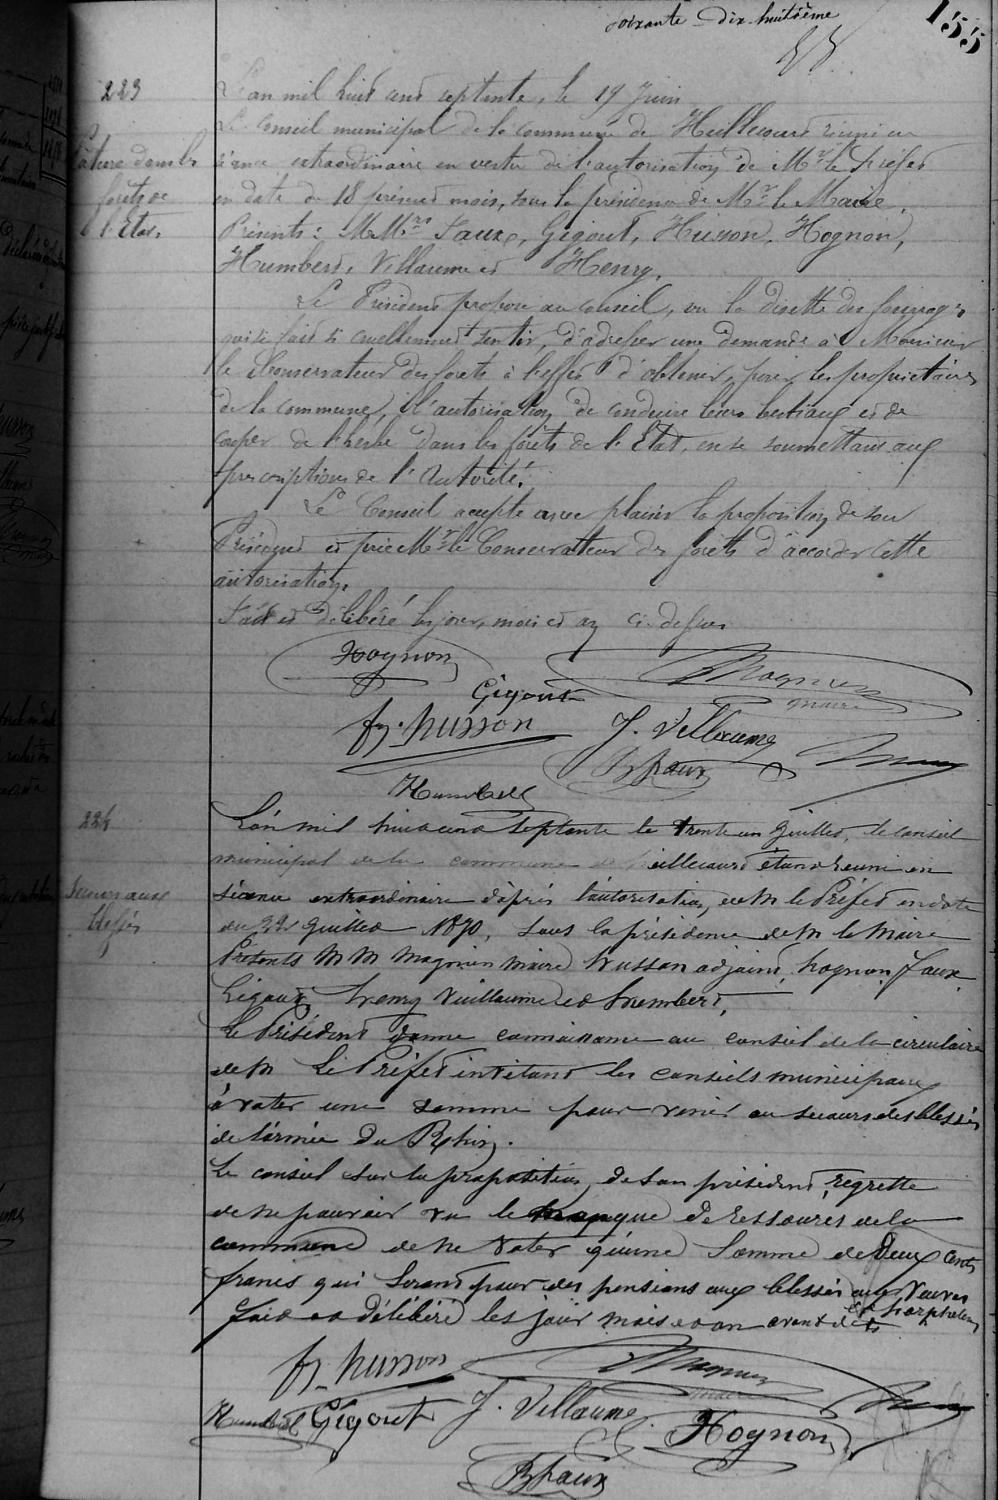 soixante dix huitième
155
223
Pature dans les
forêts de
l'Etat.
L'an mil huit cent septante, le 19 Juin
Le Conseil municipal de la commune de Huilliecourt réuni en
séance extraordinaire en vertu de l'autorisation de Mr le Préfet
en date du 18 présent mois, sous la présidence de Mr le Maire.
Présents: MMrs Faux, Gigout, Husson, Hognon,
Humbert, Villaume et Henry.
Le Président propose au Conseil, vu la disette des fourrages
qui se fait si cruellement sentir, d'adresser une demande à Monsieur
le Conservateur des forêts à l'effet d'obtenir, pour les propriétaires
de la commune, l'autorisation de conduire leurs bestiaux et de
couper de l'herbe dans les forêts de l'Etat, en se soumettant aux
prescriptions de l'Autorité.
Le Conseil accepte avec plaisir la proposition de son
Président et prie Mr le Conservateur des forêts d'accorder cette
autorisation.
Fait et délibéré les jour, mois et an ci-dessus
Hognon
Magnien
maire
Gigout
fx. husson
J. Villaume
Faux
Humbert
224
Secours aux
blessés
L'an mil huit cent septante le trente un Juillet, le conseil
municipal de la commune de huilliecourt étant réuni en
séance extraordinaire d'après l'autorisation, de M le Préfet en date
du 22 Juillet 1870, sous la présidence de M le Maire
Présents MM Magnien maire husson adjoint, hognon, faux
Gigout, henry Vuillaume et humbert,
Le Président donne connaissance au conseil de la circulaire
de M Le Préfet invitant les conseils municipaux
à voter une somme pour venir au secours des blessés
de l'armée du Rhin.
Le conseil sur la proposition, de son président, regrette
de ne pouvoir vu le manque de ressources de la
commune de ne voter qu'une somme de deux cents
francs qui seront pour des pensions aux blessés aux Veuves
et horphelins
fait et délibéré les jour mois et an avant dits
fx. husson
Magnien
maire
Humbert
Gigout
J. Villaume
Hognon
Faux